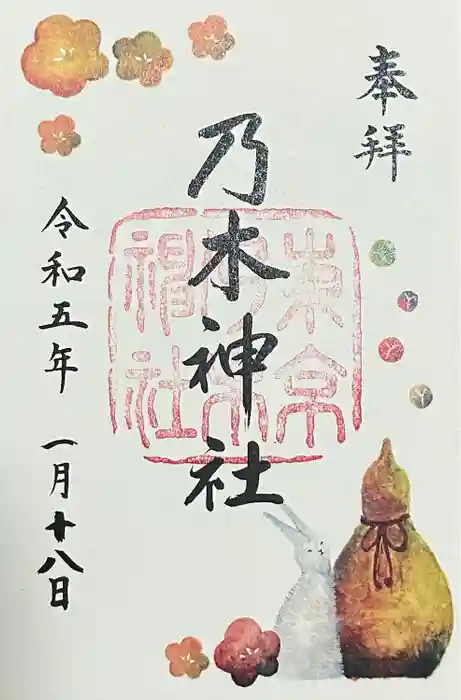 奉拝
乃木神社
東京乃木神社
令和五年 一月十八日